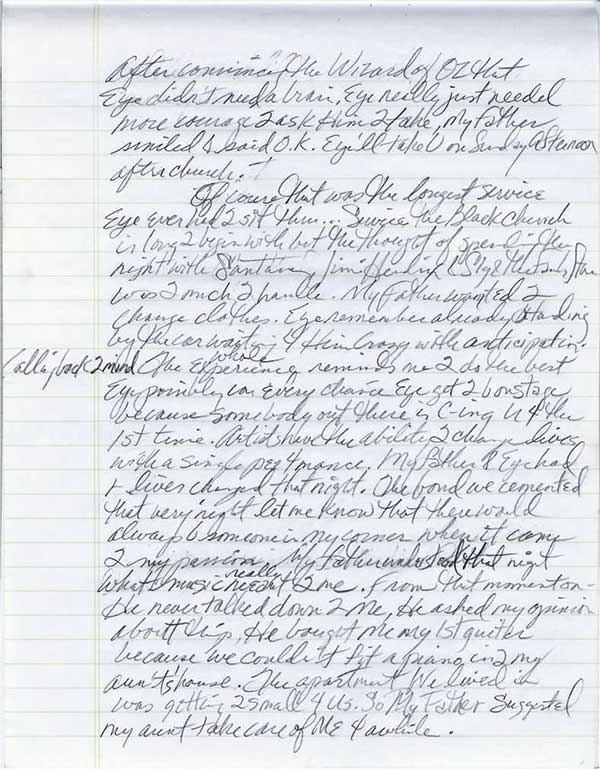 After convincing the Wizard of OZ that
Eye didn't need a brain, Eye really just needed
more courage 2 ask Him 2 take, My Father
smiled & said O.K. Eye'll take U on Sunday Afternoon
after church.
Of course that was the longest service
Eye ever had 2 sit thru... Service @ the Black church
is long 2 begin with but the thought of spending the
night with Santana, Jimi Hendrix & Sly & the
was 2 much 2 handle. My Father wanted 2
change clothes. Eye remember already standing
by the car waiting 4 Him crazy with anticipation.
Calling back 2 mind the whole experience reminds me 2 do the best
Eye possibly can every chance Eye get 2 b onstage
because somebody out there is C-ing U 4 the
1st time. Artists have the ability 2 change lives
with a single per4mance. My Father & Eye had
r lives changed that night. The bond we cemented
that very night let me know that there would
always b someone in my corner when it came
2 my passion. My Father understood that night
what music really meant 2 me. From that moment on-
He never talked down 2 Me, He asked my opinion
about things, He bought Me my 1st guitar
because we couldn't fit a piano in2 my
aunt's house. The apartment We lived in
was getting 2 small 4 us. So My Father suggested
my aunt take care of Me 4 awhile.